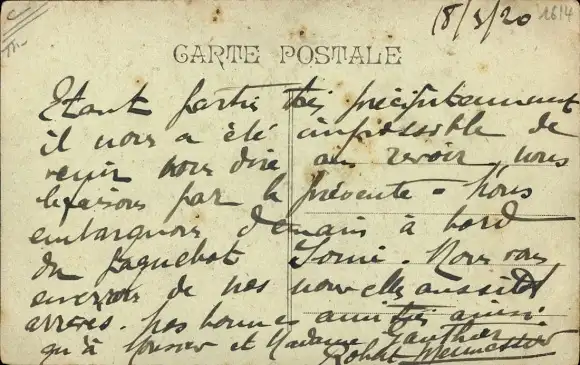 18/3/20 1614
CARTE POSTALE
Etant partis très précipitamment
il nous a été impossible de
venir vous dire au revoir, nous
le faisons par la présente - Nous
embarquons demain à bord
du paquebot . Nous vous
enverrons de nos nouvelles aussitôt
arrivés. Nos bonnes amitiés ainsi
qu'à Monsieur et Madame Gauthier
Robert